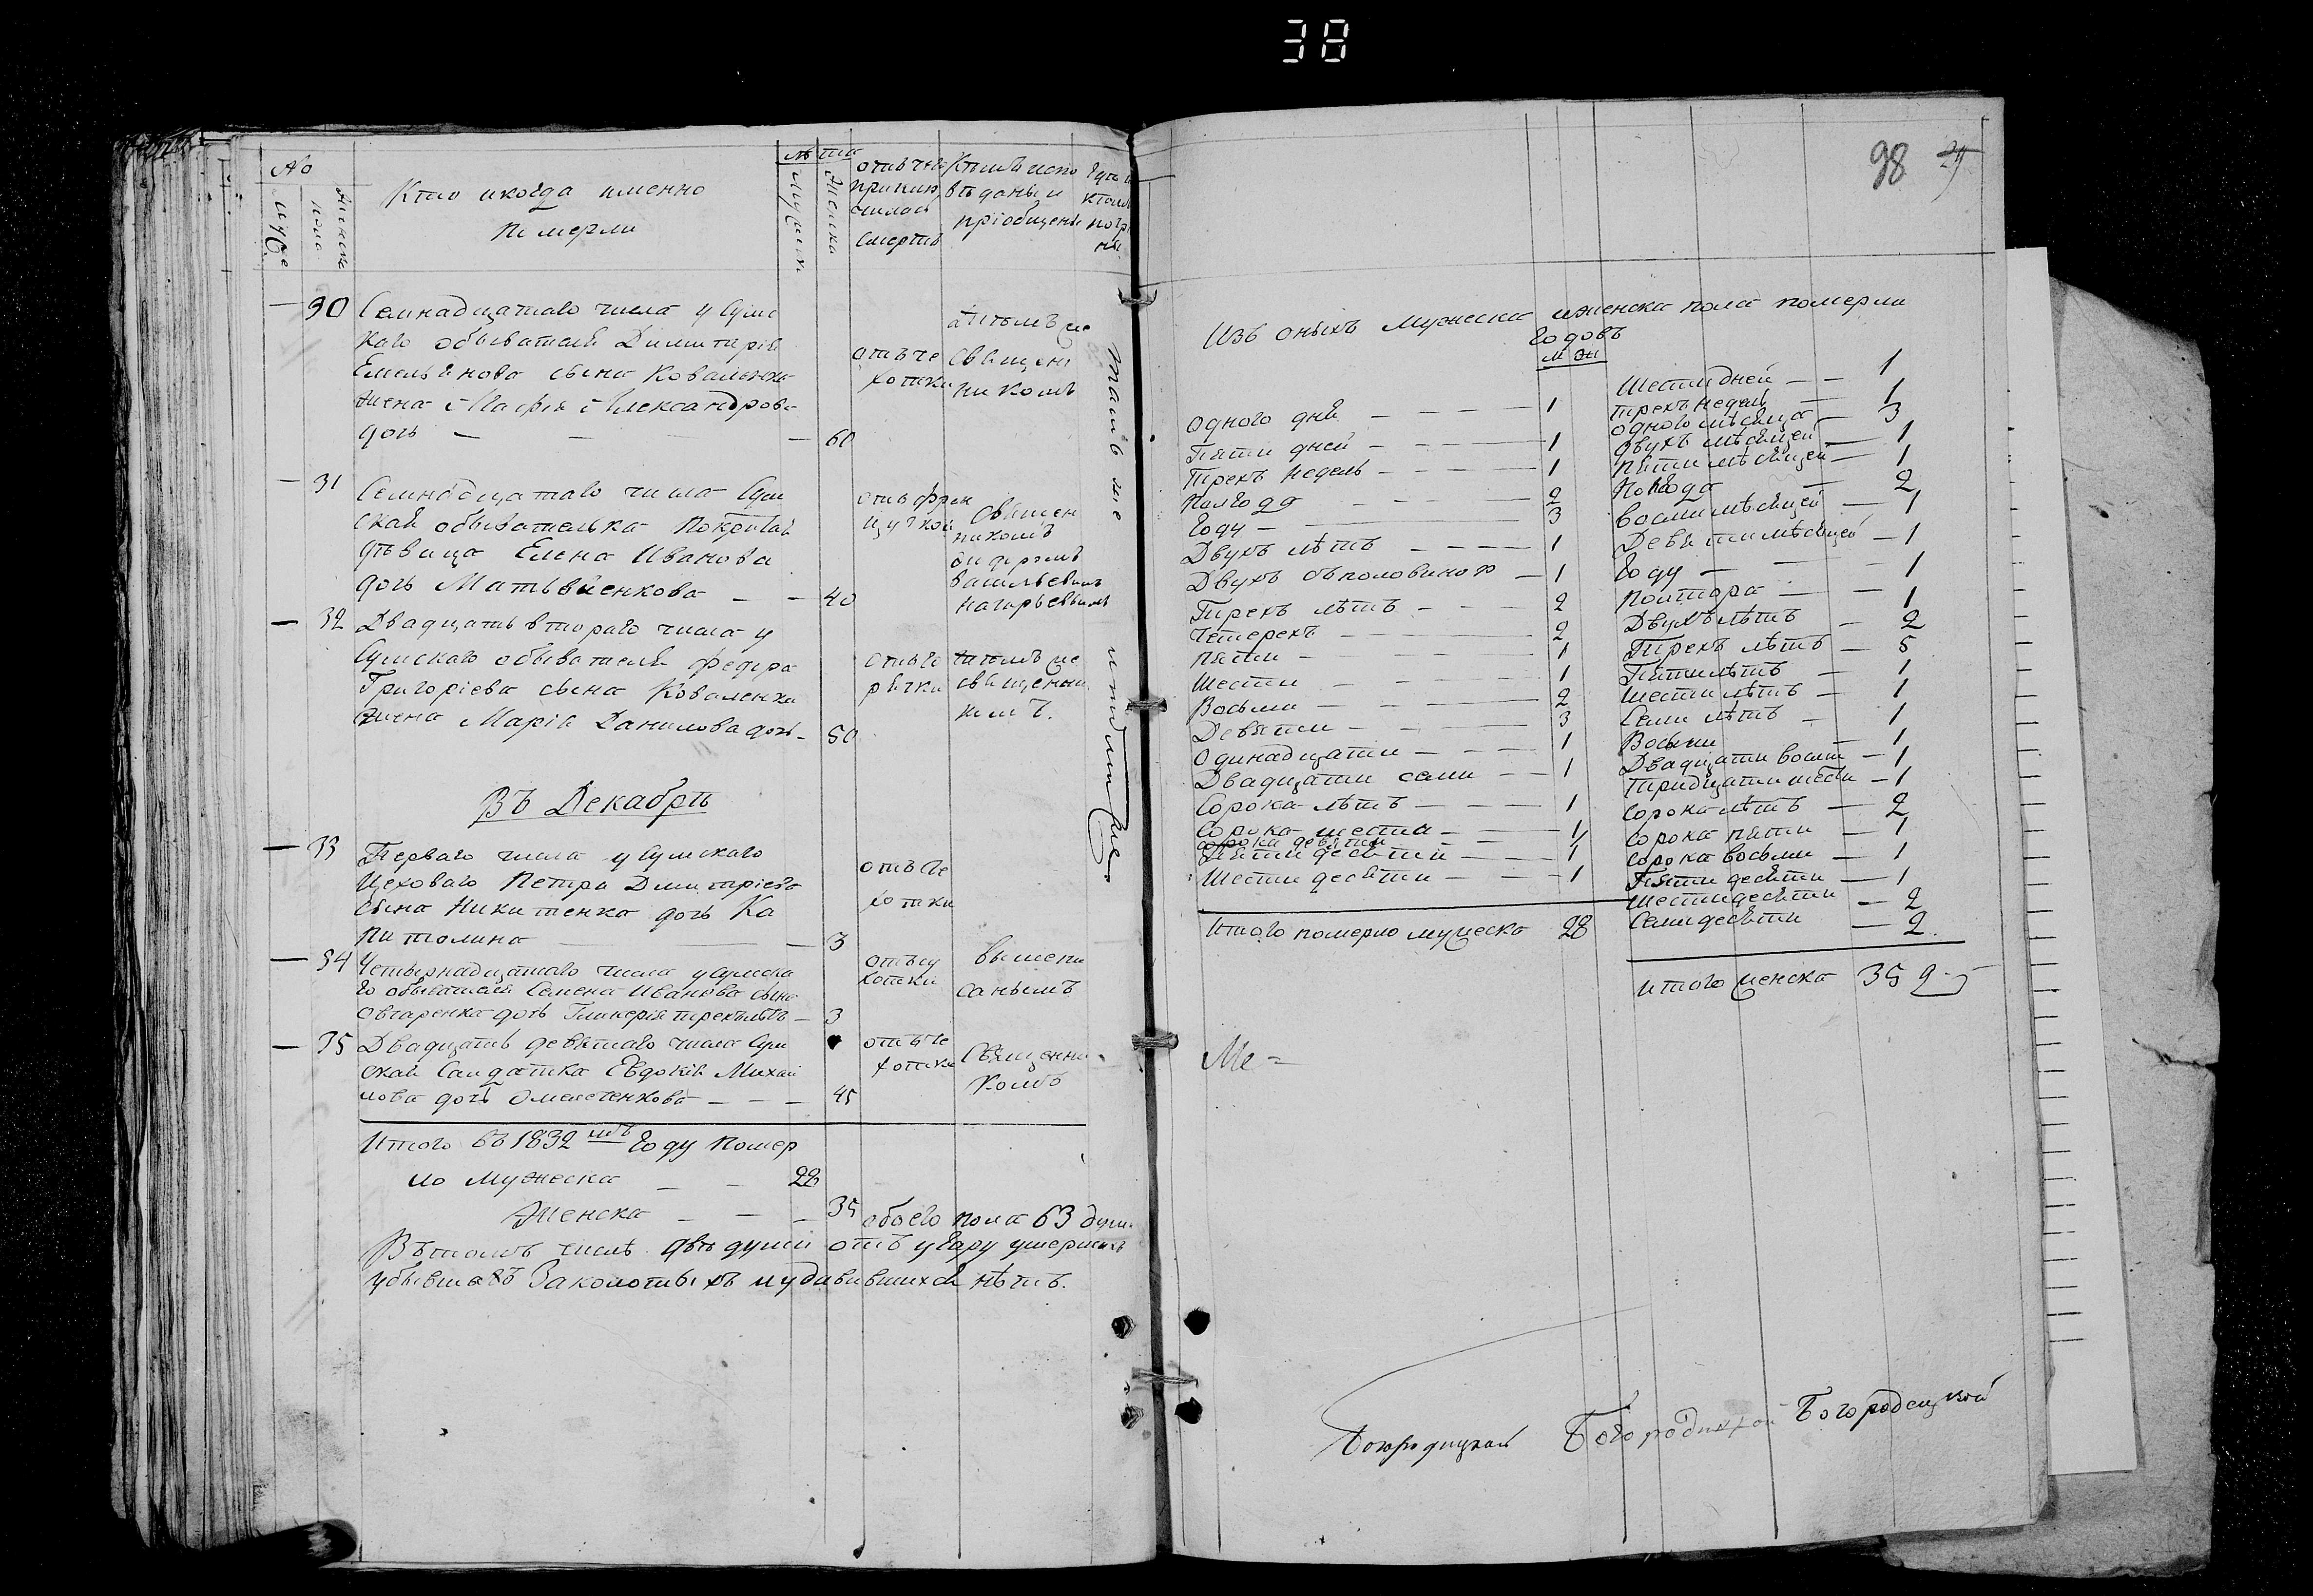 38
№
Мужс
Женск
пола
Кто и когда именно
померли
Лѣта
Мужеск
Женска
отъ чего
приклю
чилась
смерть
Кѣмъ испо
вѣданы и
пріобщены
Гдѣ и
кѣмъ
погр
ны
— 30 Семнадцатаго числа у Сумс
каго обывателя Димитрія
Емельянова сына Коваленка
жена Марфа Александрова
дочь — — — — 60
отъ че
хотки
тѣмъ же
священ
никомъ
— 31 Семнадцатаго числа Сум
ская обывателька
дѣвица Елена Иванова
дочь Матвѣенкова — — 40
отъ фран
цузкой
Священ
никомъ
Ѳидоромъ
Васильевымъ
— 32 Двадцать втораго числа у
Сумскаго обывателя Федора
Григоріева сына Коваленка
жена Марія Данилова дочь — 50
отъ го
рячки
тѣмъ же
священни
комъ.
тамъ же и тѣмъ же
Въ Декабрѣ
— 33 Перваго числа у Сумскаго
Цеховаго Петра Димитріева
сына Никитенка дочь Ка
питолина — — 3
отъ че
хотки
— 34 Четырнадцатаго числа у Сумска
го обывателя Семена Иванова сына
Овчаренка дочь Гликерія трехълѣтъ — 3
отъ су
хотки
вышепи
саннымъ
— 35 Двадцать девятаго числа Сум
ская Салдатка Евдокія Михай
лова дочь — — — 45
отъ че
хотки
Священни
комъ
Итого въ 1832 мъ Году помер
ло Мужеска — — 28
Женска — — — 35 обоего пола 63 душ
Въ томъ числѣ двѣ души отъ угару умершихъ
убившихъ Заколотыхъ и удавившихся нѣтъ.
98 29
Изъ оныхъ Мужеска и женска пола померли
Годовъ
М Ж
Одного дня — — — — 1
Пяти дней — — — — 1
Трехъ недель — — — — 1
Полгода — — 2
Году — — — 3
Двухъ лѣтъ — — — — 1
Двухъ съ половиною — 1
Трехъ лѣтъ — — — 2
Четерехъ — — — — 2
Пяти — — — — 1
Шести — — — — 1
Восьми — — — — 2
Девяти — — — — 3
Одинадцати — — — — 1
Двадцати семи — — 1
Сорока лѣтъ — — — 1
Сорока шести — — — 1
Сорока девяти — — 1
Пяти десяти — — — 1
Шести десяти — — — 1
Итого померло мужеска 28
Шести дней — — 1
трехъ недель — 1
одного мѣсяца — 3
двухъ мѣсяцей — 1
пяти мѣсяцей — 1
Полгода — 2
восми мѣсяцей — 1
Девяти мѣсяцей — 1
Году — — — 1
Полтора — — 1
Двухъ лѣтъ — 2
Трехъ лѣтъ — 5
Пяти лѣтъ — 1
Шести лѣтъ — 1
Семи лѣтъ — 1
Восьми — 1
Двадцати восми — 1
Тридцати шести — 1
Сорока лѣтъ — 2
Сорока пяти — 1
Сорока восьми — 1
Пяти десяти — 1
Шестидесяти — 2
Семидесяти — 2.
Итого женска 35
Ме =
Богородицкой Богородицкой Богородецкой